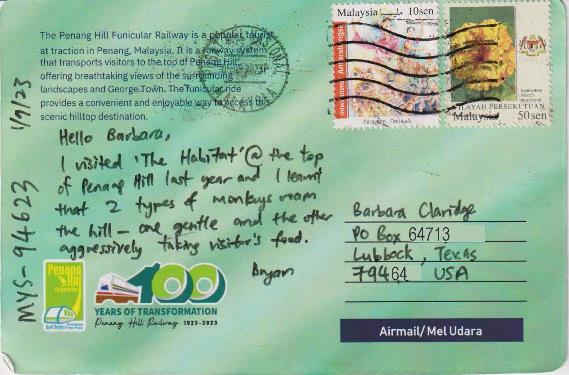 The Penang Hill Funicular Railway is a popular tourist
at traction in Penang, Malaysia. It is a railway system
that transports visitors to the top of Penang Hill,
offering breathtaking views of the surrounding
landscapes and George Town. The funicular ride
provides a convenient and enjoyable way to access this
scenic hilltop destination.
Malaysia 10sen
International
Antarabangsa
Perayaan Festivals
WILAYAH PERSEKUTUAN
Malaysia 50sen
1/9/23
MYS-94623
Hello Barbara,
I visited 'The Habitat' @ the top
of Penang Hill last year and I learnt
that 2 types of monkeys roam
the hill – one gentle and the other
aggressively taking visitor's food.
Bryan
Barbara Claridge
PO Box 64713
Lubbock, Texas
79464 USA
Penang
Hill
Corporation
100
YEARS OF TRANSFORMATION
Penang Hill Railway 1923-2023
Airmail/Mel Udara